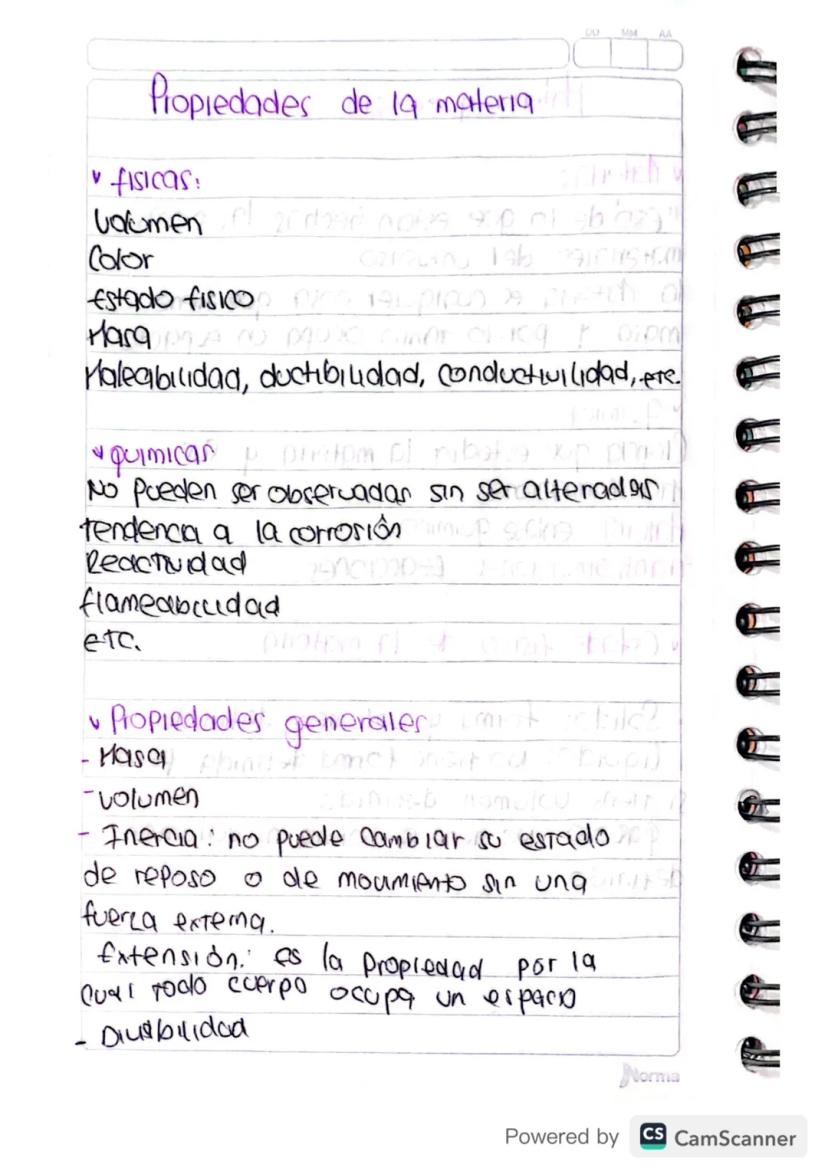 DD MM AA
Propiedades de la materia
fisicas:
Volumen
Color
Estado fisico
Masa
Maleabilidad, ductibilidad, conductividad, etc.
quimicas
No pueden ser observadas sin ser alteradas
tendencia a la corrosión
Reactividad
flameabilidad
etc.
Propiedades generales
- Masa
- volumen
- Inercia: no puede cambiar su estado
de reposo o de movimiento sin una
fuerza externa.
Extensión: es la propiedad por la
cual todo cuerpo ocupa un espacio
- Divisibilidad
Norma
Powered by CS CamScanner